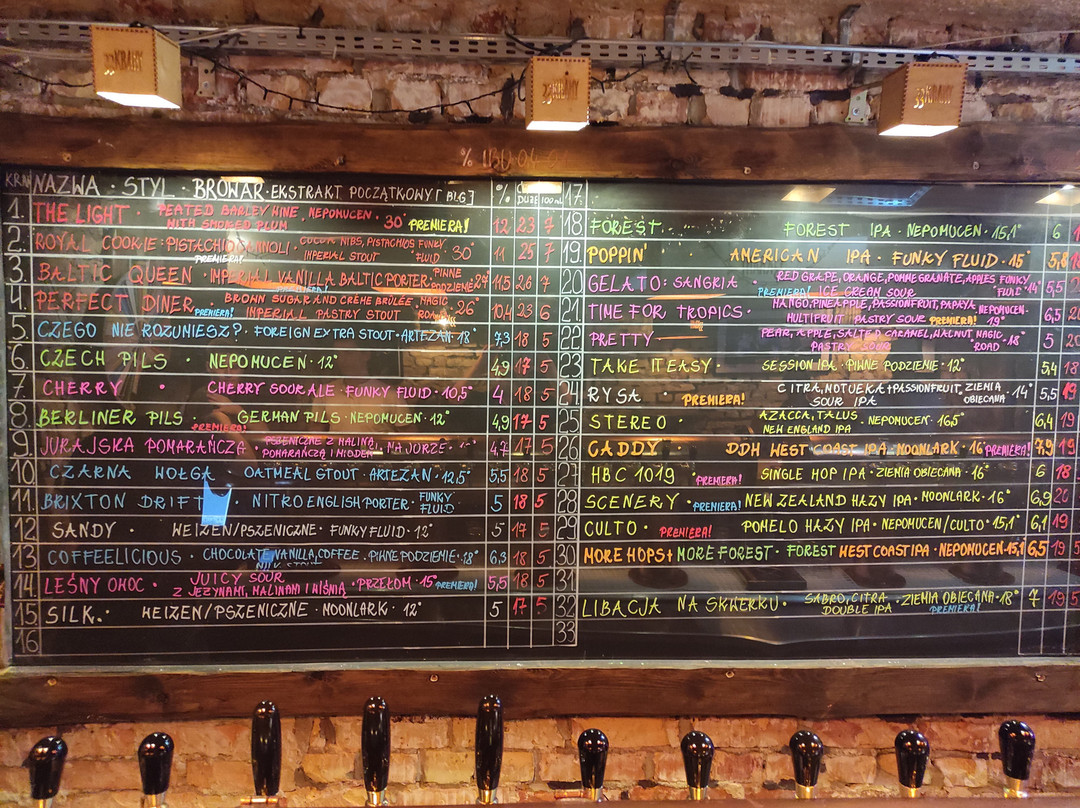 33KRANY
33KRANY
33KRANY
NAZWA · STYL · BROWAR · EKSTRAKT POCZĄTKOWY [BLG] % DUŻE 100ml
1. THE LIGHT · PEATED BARLEY WINE WITH SMOKED PLUM NEPOMUCEN · 30° PREMIERA! 12 23 7
2. ROYAL COOKIE: PISTACHIO CANNOLI · COCOA NIBS, PISTACHIOS IMPERIAL STOUT FUNKY FLUID 30° PREMIERA! 11 25 7
3. BALTIC QUEEN · IMPERIAL VANILLA BALTIC PORTER · PIWNE PODZIEMIE 11,5 26 7
4. PERFECT DINER PREMIERA! BROWN SUGAR AND CRÈME BRÛLÉE IMPERIAL PASTRY STOUT MAGIC ROAD 26° 10,4 23 6
5. CZEGO NIE ROZUMIESZ? · FOREIGN EXTRA STOUT · ARTEZAN · 18° 7,3 18 5
6. CZECH PILS · NEPOMUCEN · 12° 4,9 17 5
7. CHERRY · CHERRY SOUR ALE · FUNKY FLUID · 10,5° 4 18 5
8. BERLINER PILS · PREMIERA! GERMAN PILS · NEPOMUCEN · 12° 4,9 17 5
9. JURAJSKA POMARAŃCZA · PSZENICZNE Z MALINĄ, POMARAŃCZĄ I MIODEM NA JURZE 17 5
10. CZARNA WOŁGA · OATMEAL STOUT · ARTEZAN · 12,5° 5,5 18 5
11. BRIXTON DRIFT · NITRO ENGLISH PORTER · FUNKY FLUID 5 18 5
12. SANDY · WEIZEN/PSZENICZNE · FUNKY FLUID · 12° 5 17 5
13. COFFEELICIOUS · CHOCOLATE, VANILLA, COFFEE MILK STOUT · PIWNE PODZIEMIE · 18° 6,3 18 5
14. LEŚNY OWOC · JUICY SOUR Z JEŻYNAMI, MALINAMI I WIŚNIĄ · PRZEŁOM · 15° PREMIERA! 5,5 18 5
15. SILK · WEIZEN/PSZENICZNE · MOONLARK · 12° 5 17 5
16
17.
18. FOREST · FOREST IPA · NEPOMUCEN · 15,1° 6
19. POPPIN' AMERICAN IPA · FUNKY FLUID · 15° 5,8
20. GELATO: SANGRIA · PREMIERA! RED GRAPE, ORANGE, POMMEGRANATE, APPLES ICE CREAM SOUR FUNKY FLUID 14° 5,5
21. TIME FOR TROPICS · MANGO, PINEAPPLE, PASSIONFRUIT, PAPAYA MULTIFRUIT PASTRY SOUR PREMIERA! NEPOMUCEN · 19° 6,5 20
22. PRETTY PEAR, APPLE, SALTED CARAMEL, WALNUT PASTRY SOUR MAGIC ROAD · 18° 5
23 TAKE IT EASY · SESSION IPA · PIWNE PODZIEMIE · 12° 5,4 18
24. RYSA · PREMIERA! CITRA, NOTUEKA + PASSIONFRUIT, SOUR IPA ZIEMIA OBIECANA · 14° 5,5 19
25 STEREO · AZACCA, TALUS NEW ENGLAND IPA · NEPOMUCEN · 16,5° 6,4 19
26 CADDY · DDH WEST COAST IPA · MOONLARK · 16° PREMIERA! 7,9 19
27 HBC 1019 · PREMIERA! SINGLE HOP IPA · ZIEMIA OBIECANA · 16° 6 18
28 SCENERY · PREMIERA! NEW ZEALAND HAZY IPA · MOONLARK · 16° 6,9 20
29 CULTO · PREMIERA! POMELO HAZY IPA · NEPOMUCEN/CULTO · 15,1° 6,1 19
30 MORE HOPS + MORE FOREST · FOREST WEST COAST IPA · NEPOMUCEN · 15,1 6,5 19
31
32 LIBACJA NA SKWERKU · SABRO, CITRA DOUBLE IPA · ZIEMIA OBIECANA · 18° PREMIERA! 7 19 5
33